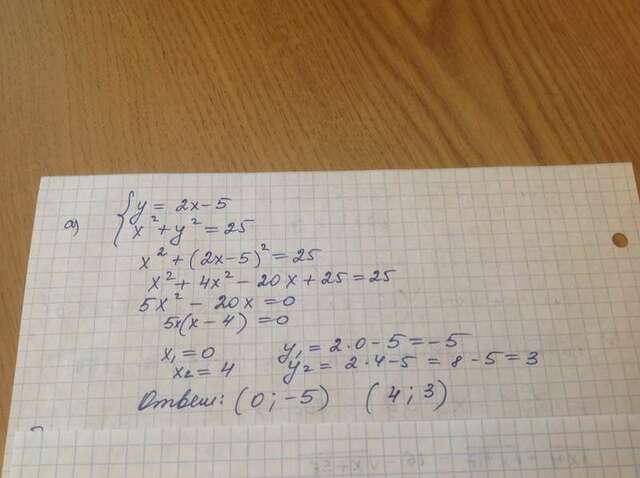 а) { y = 2x - 5
x² + y² = 25
x² + (2x-5)² = 25
x² + 4x² - 20x + 25 = 25
5x² - 20x = 0
5x(x - 4) = 0
x₁ = 0 y₁ = 2·0 - 5 = -5
x₂ = 4 y₂ = 2·4-5 = 8 - 5 = 3
Ответ: (0; -5) (4; 3)